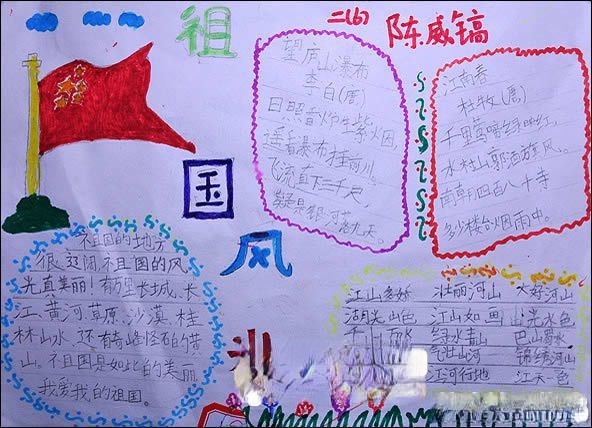 祖
国
风
二(6) 陈威镐
望庐山瀑布
李白(唐)
日照香炉生紫烟
遥看瀑布挂前川,
飞流直下三千尺,
疑是银河落九天。
江南春
杜牧(唐)
千里莺啼绿映红,
水村山郭酒旗风。
南朝四百八十寺
多少楼台烟雨中。
祖国的地方
很辽阔,祖国的风
光真美丽!有万里长城、长
江、黄河草原、沙漠、桂
林山水,还有奇峰怪石的黄
山。祖国是如此的美丽
我爱我的祖国。
江山多娇 壮丽河山 大好河山
湖光山色 江山如画 山光水色
千山 水 绿水青山 巴山蜀水
气壮山河 锦绣河山
江河行地 江天一色